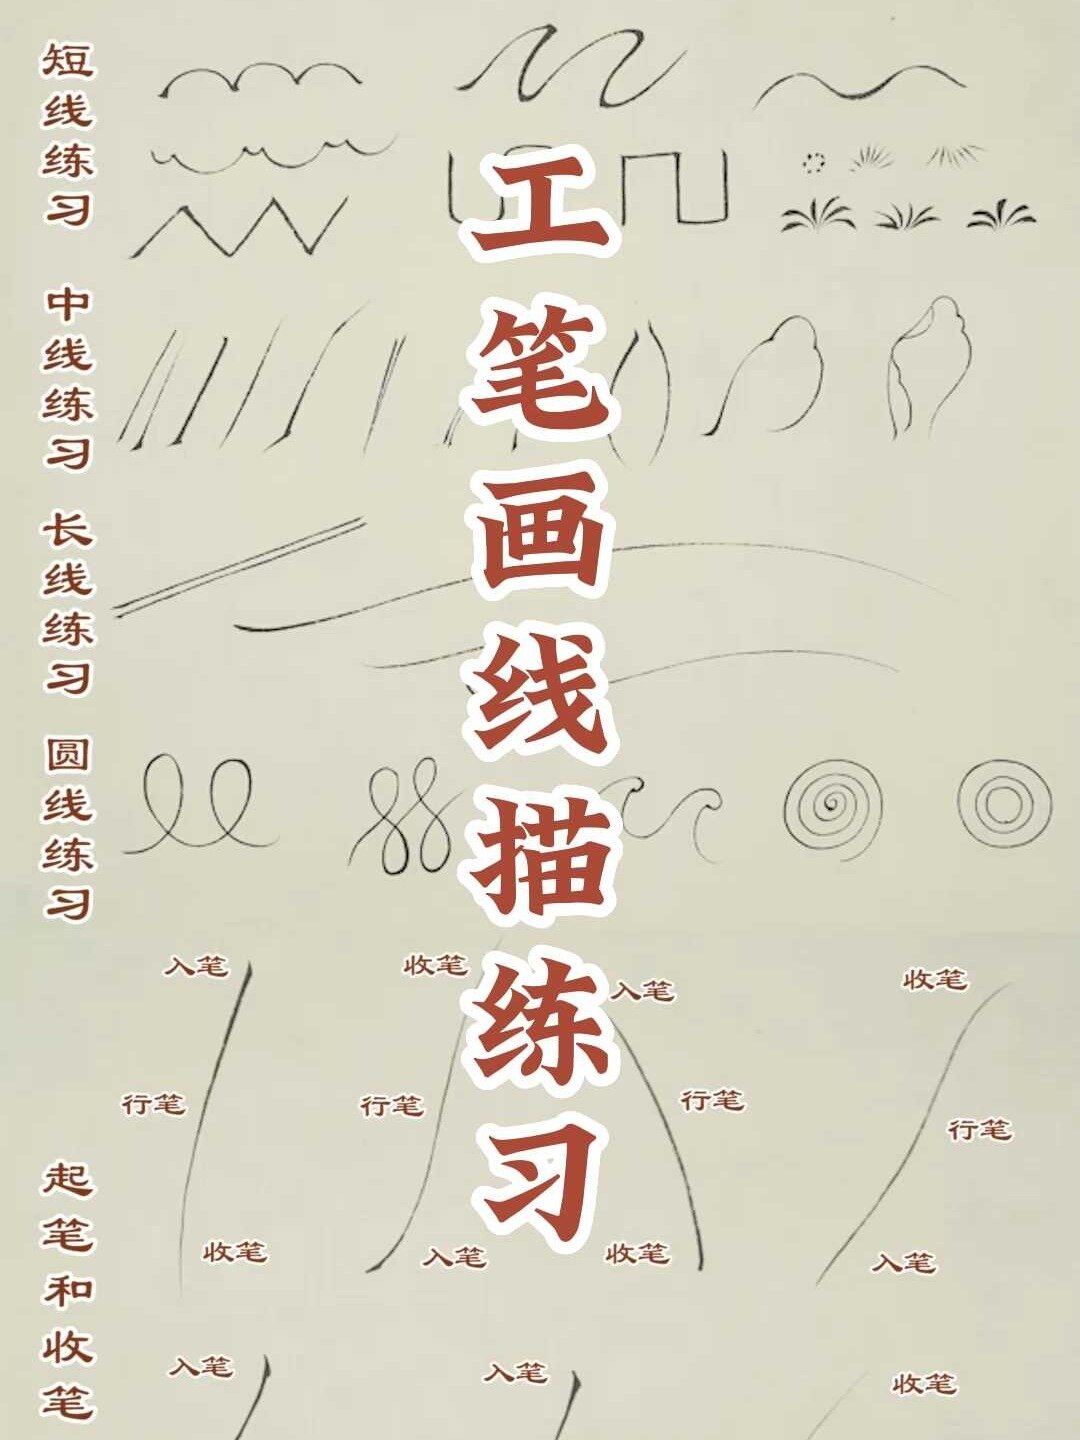 工笔画线描练习
短线练习
中线练习
长线练习
圆线练习
起笔和收笔
入笔
收笔
入笔
收笔
行笔
行笔
行笔
行笔
收笔
入笔
收笔
入笔
入笔
入笔
收笔